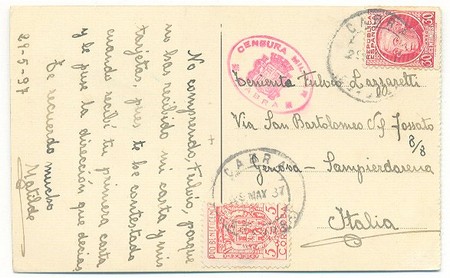 29-5-37
No comprendo, Fulvio, porque
no has recibido mi carta y mis
tarjetas, pues te he contestado
cuando recibí tu primera carta
y le puse la dirección que decias
Te recuerdo mucho
Matilde
CENSURA MILITAR
CABRA
CABRA
30
Tenienta Fulvio Lazzaretti
Via San Bartolomeo Del Fossato
8/8
Genova - Sampierdarena
Italia
CABRA
MAY. 37
5
5